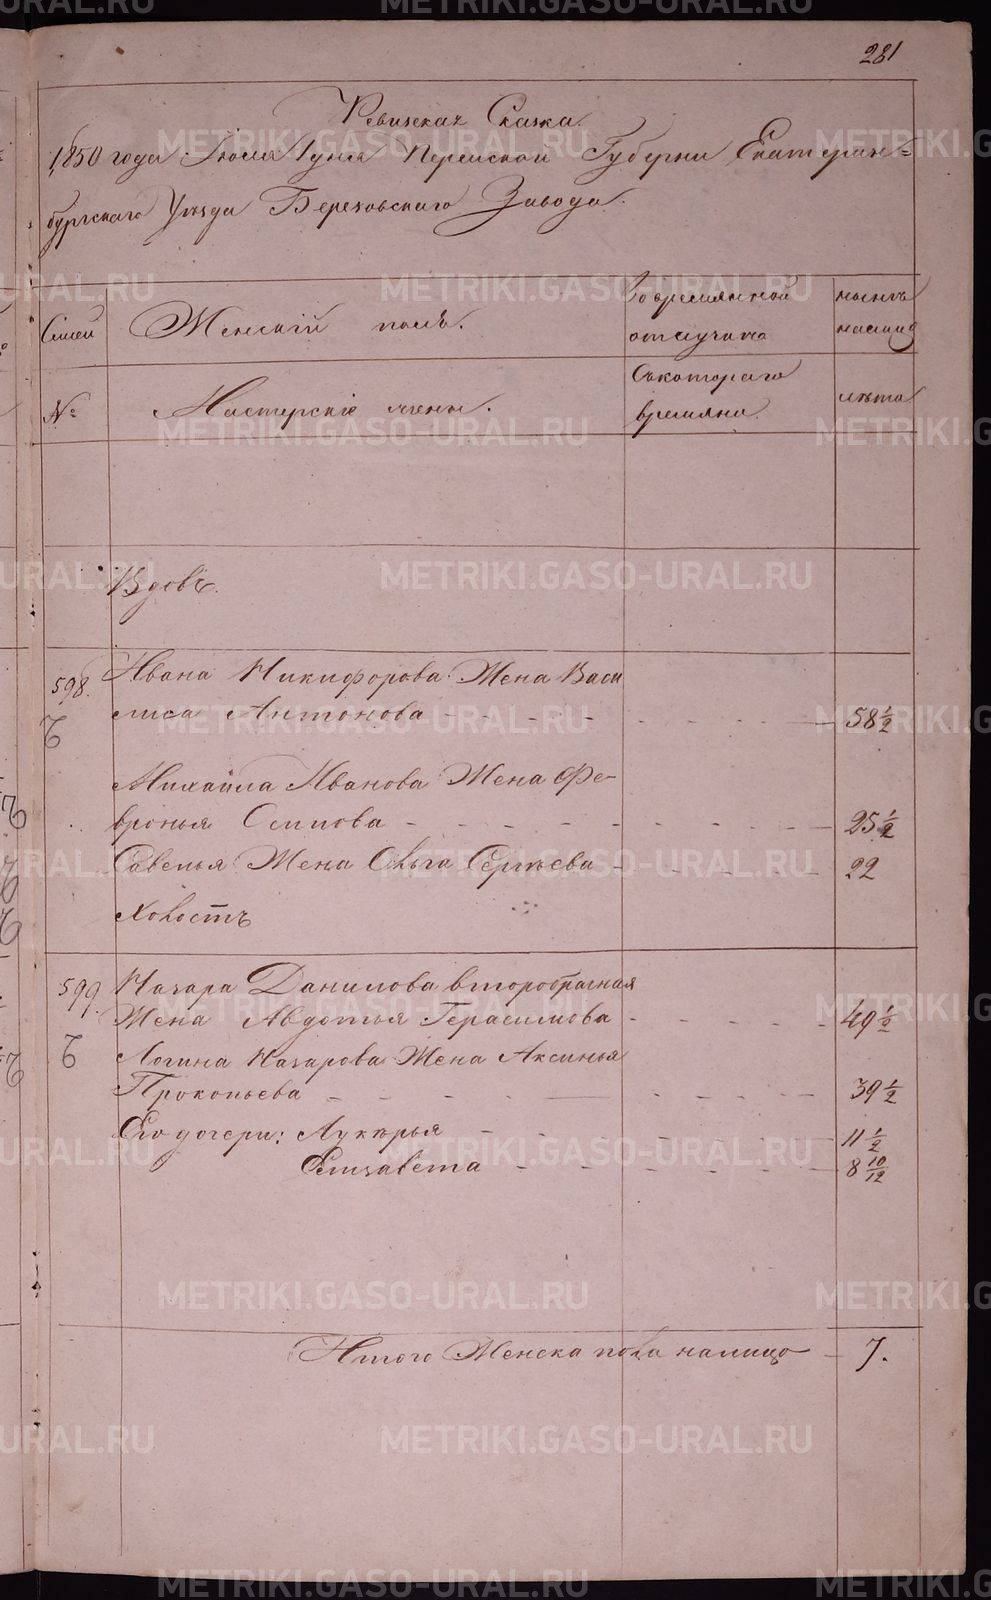 281
Ревизская Сказка.
1850 года Июля 1 дня Пермской Губернии Екатерин=
бургскаго Уѣзда Березовскаго Завода.
Семей
Женскій полъ.
Во временной
отлучкѣ
нынѣ
налицо
№
Мастерскіе жены.
Съ котораго
времяни.
лѣта
Вдовъ.
598.
Ивана Никифорова Жена Васи
лиса Антонова - - - 58 1/2
Михайла Иванова Жена Фе-
вронья Осипова - - - 25 1/2
Савелья Жена Ольга Сергѣева - - - 22
Холостъ
599.
Назара Данилова второбрачная
Жена Авдотья Герасимова - - - 49 1/2
Логина Назарова Жена Аксинья
Прокопьева - - - 39 1/2
Его дочери: Лукерья - - - 11 1/2
Елизавета - - - 8 10/12
Итого Женска пола налицо - 7.
METRIKI.GASO-URAL.RU